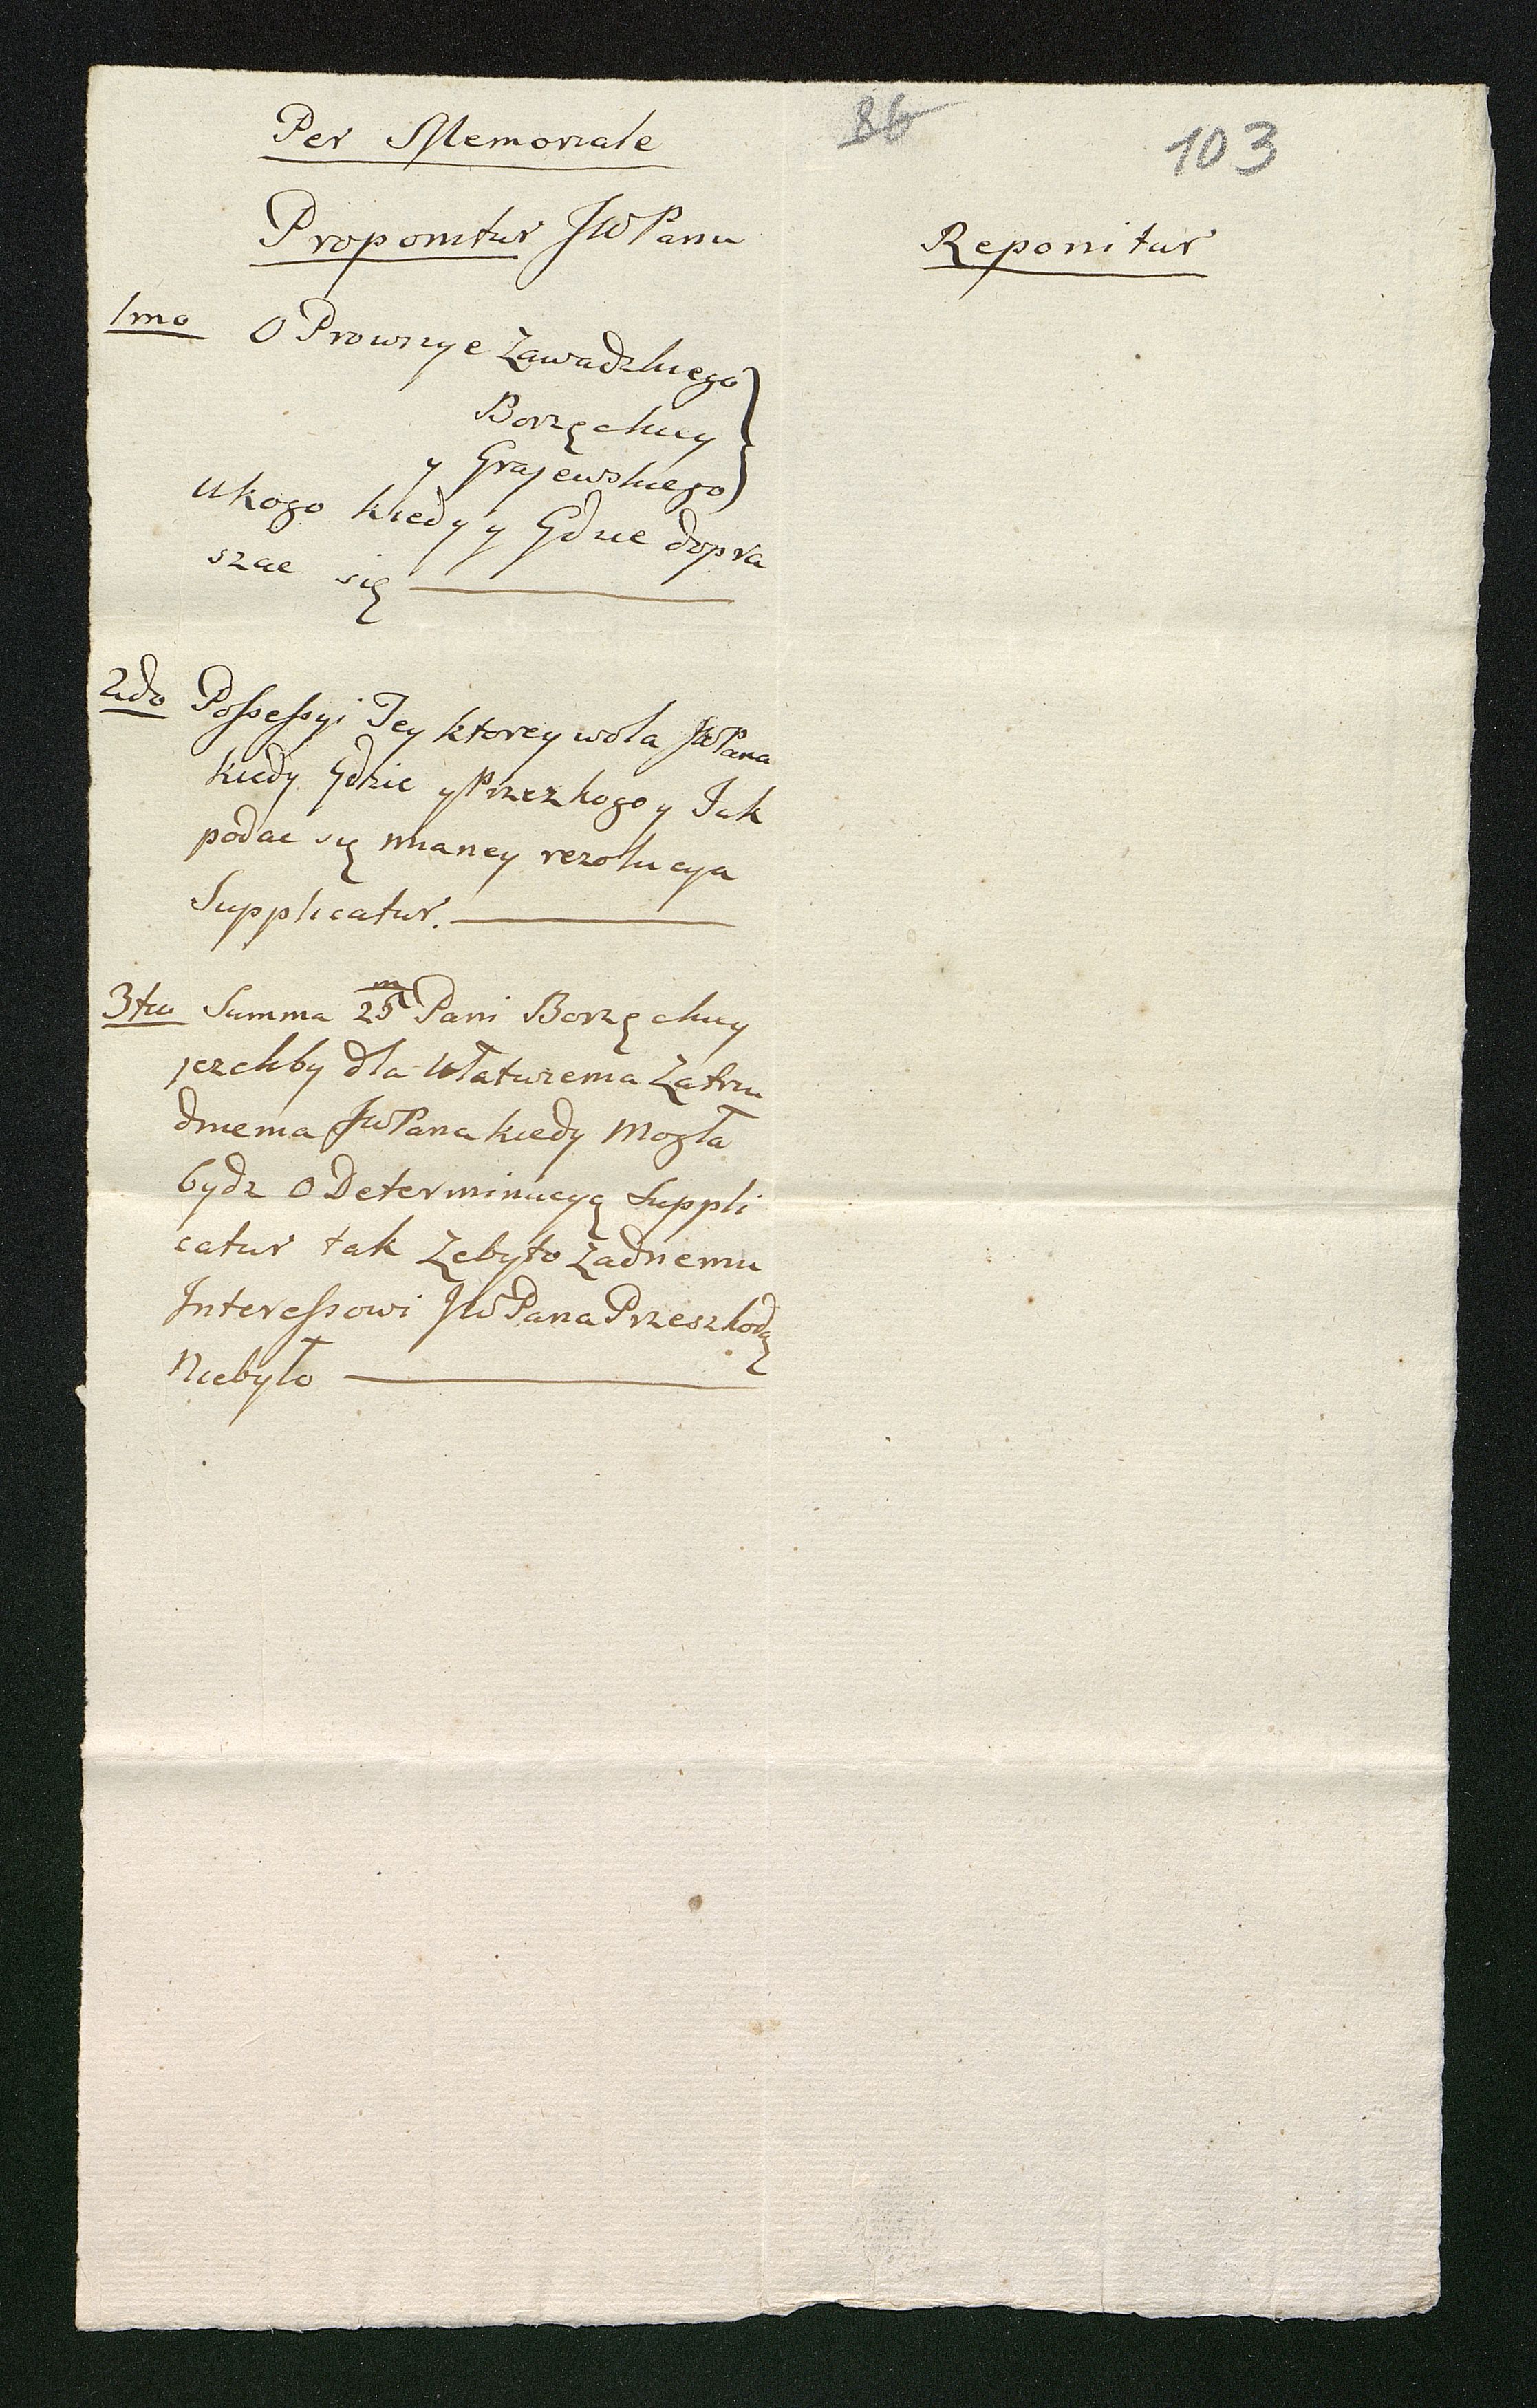 86
103
Per Memoriale
Proponitur JWPanu
Reponitur
1mo O Prowizye Zawadzkiego
Borzęckiey
y Grajewskiego
u kogo kiedy y Gdzie dopra
szac się
2do Possessyi Jey ktorey wola JWPana
kiedy Gdzie y Przez kogo y Jak
podac się maney rezolucya
Supplicatur.
3tio Summa 25m Pani Borzęckiey
jezeliby dla Ułatwienia Zatru
dnienia JWPana kiedy Mogła
bydz O Determinacyą Suppli
catur tak Zeby to Zadnemu
Interessowi JWPana Przeszkodą
Niebyło